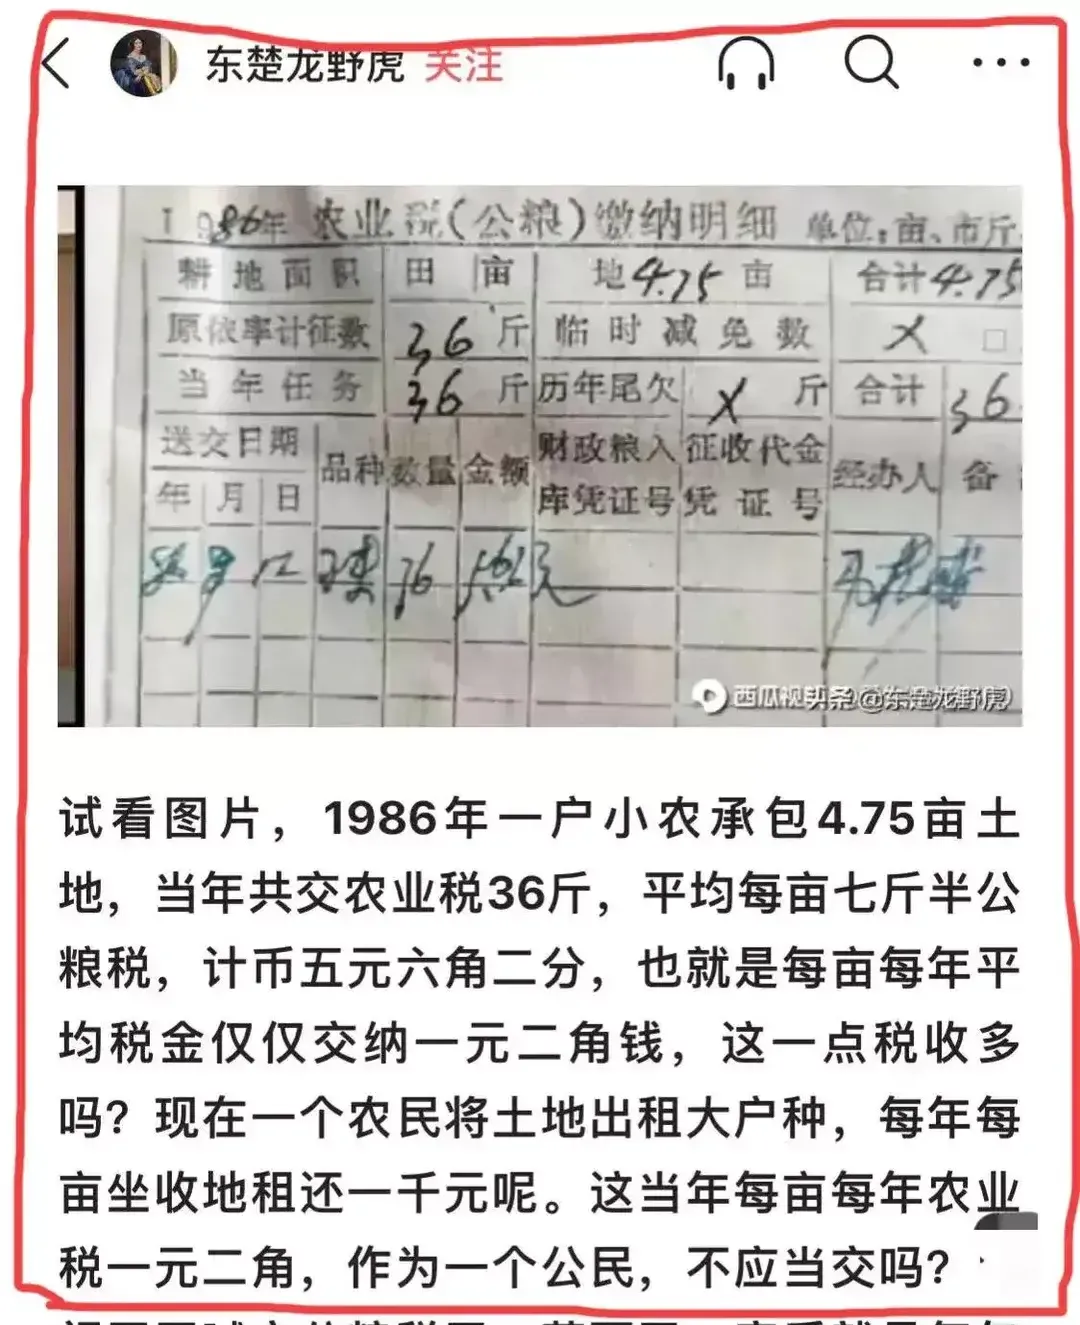 东楚龙野虎 关注
1986年 农业税(公粮)缴纳明细 单位:亩、市斤
耕地面积 田 亩 地4.75亩 合计4.75
原依率计征数 36斤 临时减免数 X
当年任务 36斤 历年尾欠 X 斤 合计 36
送交日期 品种 数量 金额 财政粮入库凭证号 征收代金凭证号 经办人 备
年 月 日
试看图片，1986年一户小农承包4.75亩土
地，当年共交农业税36斤，平均每亩七斤半公
粮税，计币五元六角二分，也就是每亩每年平
均税金仅仅交纳一元二角钱，这一点税收多
吗？现在一个农民将土地出租大户种，每年每
亩坐收地租还一千元呢。这当年每亩每年农业
税一元二角，作为一个公民，不应当交吗？